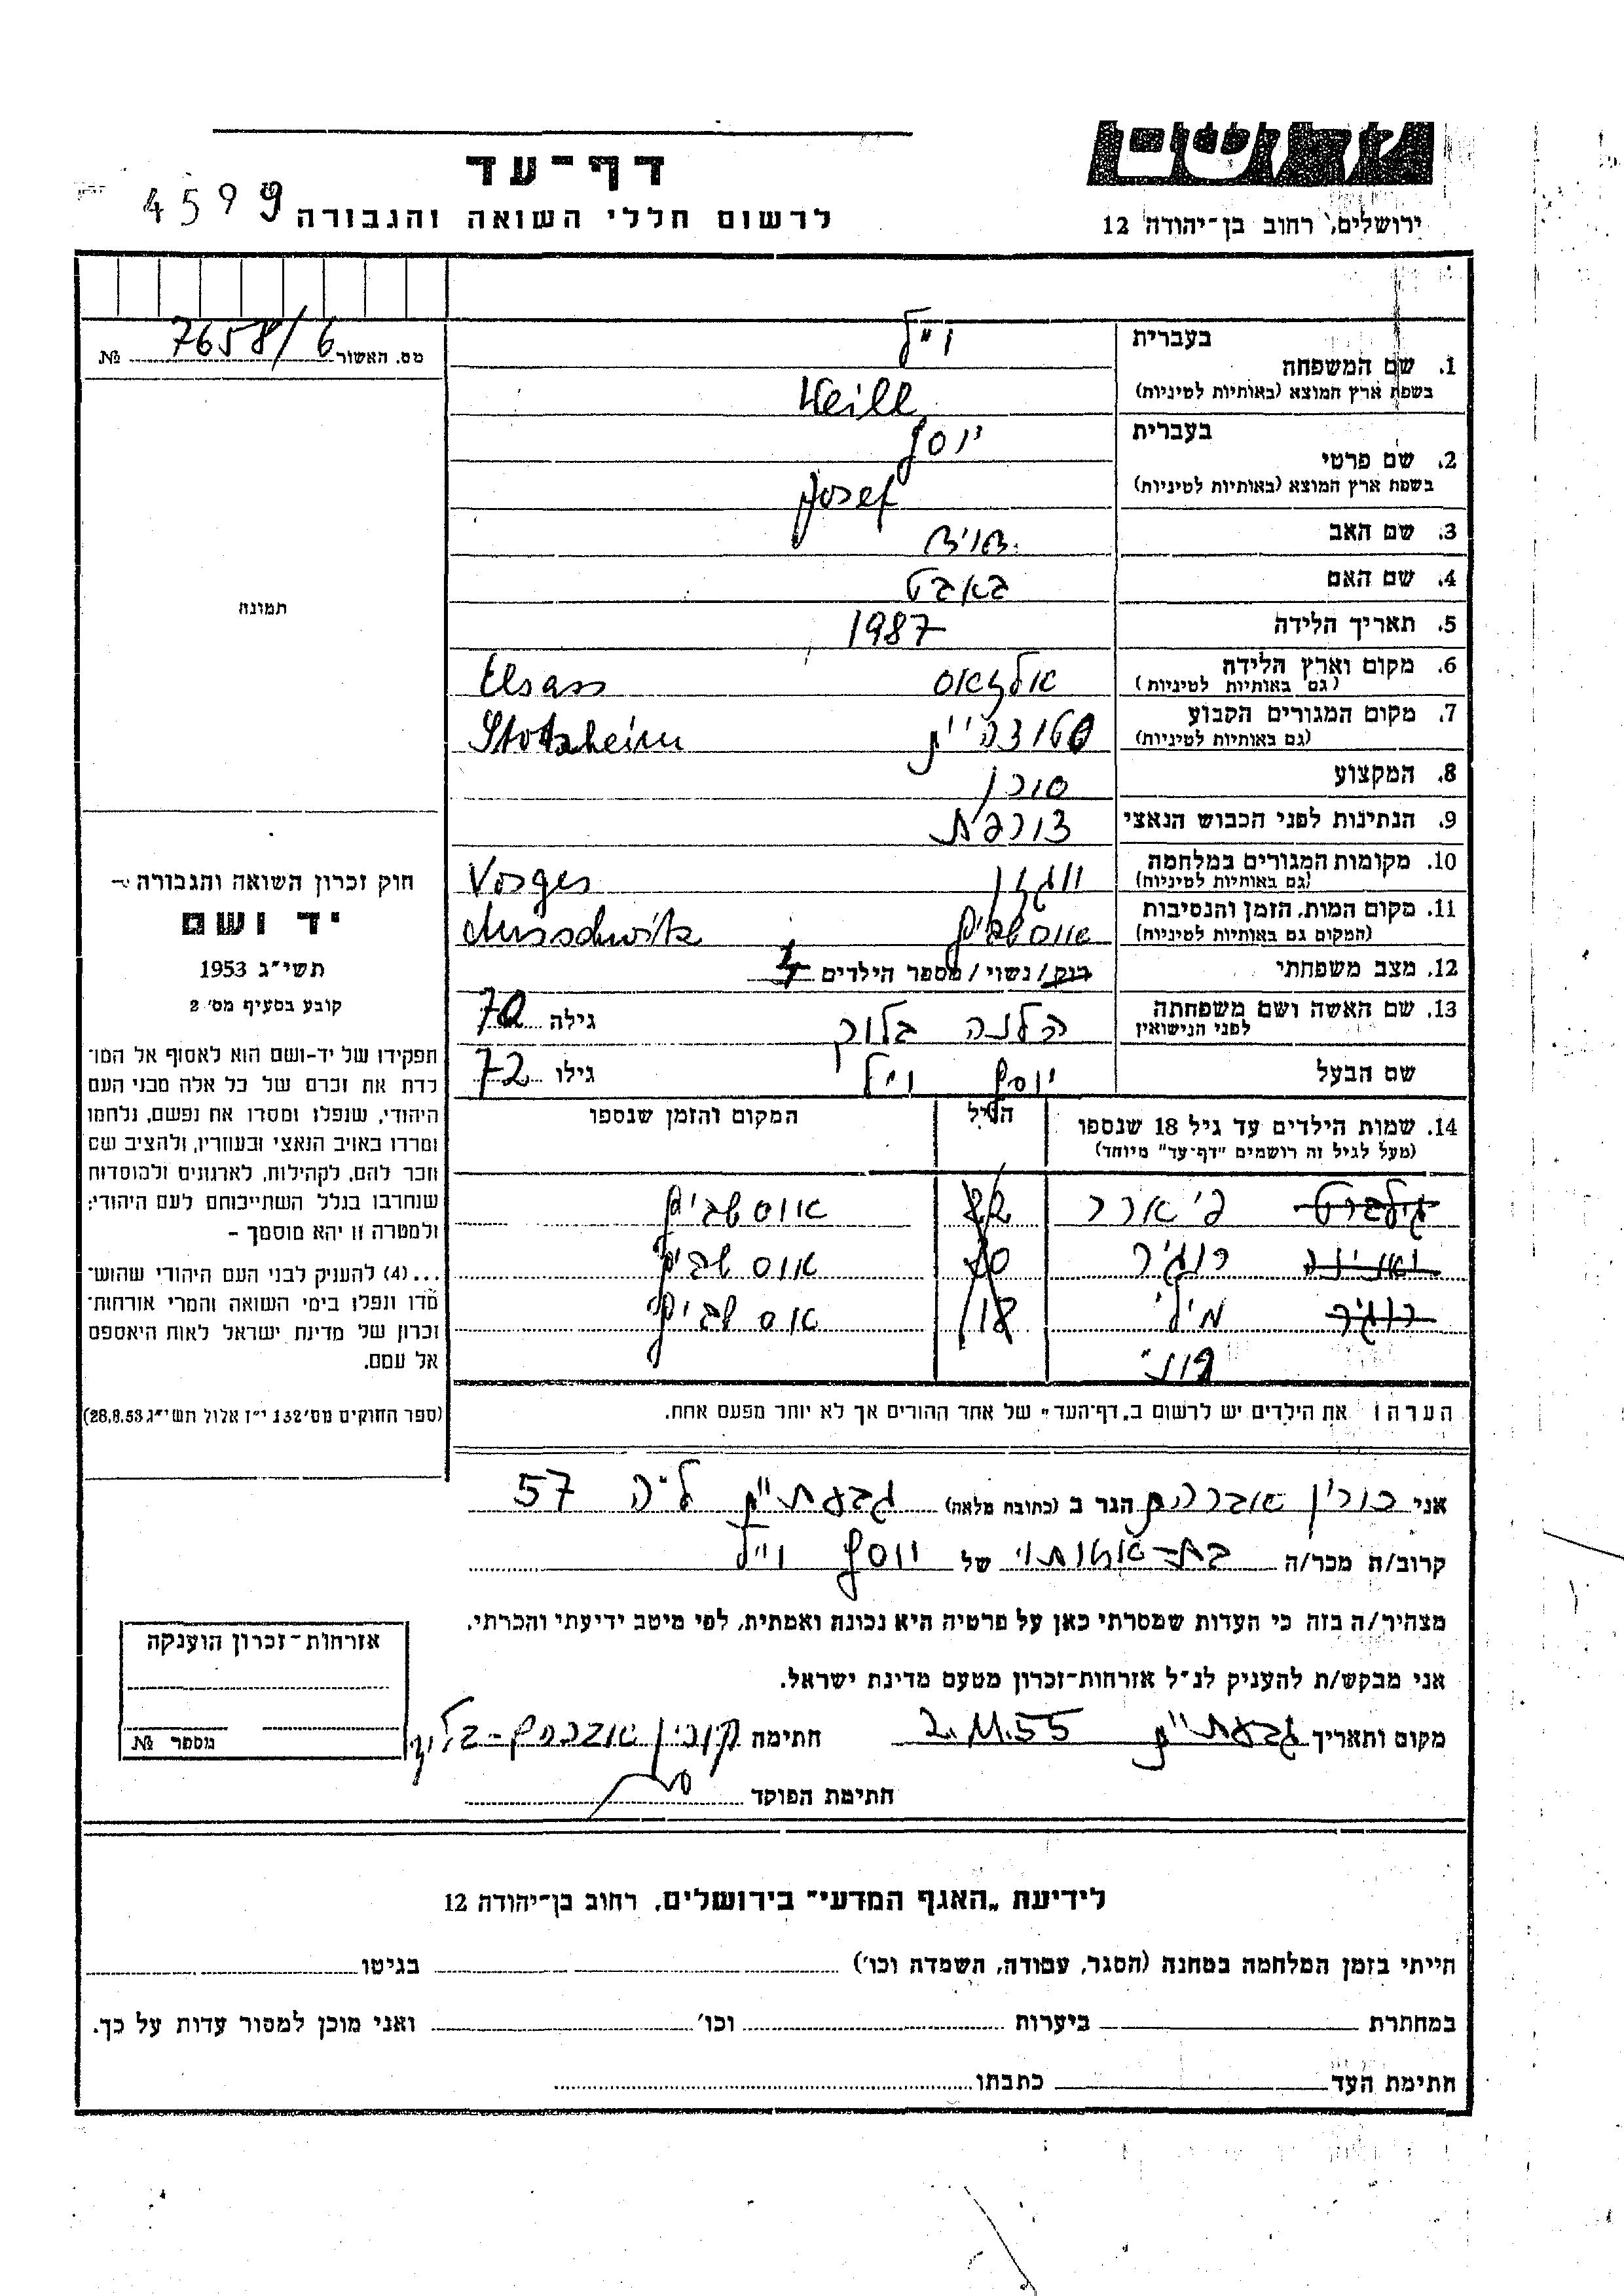 יד ושם
ירושלים, רחוב בן-יהודה 12
דף-עד
לרשום חללי השואה והגבורה
4599
מס. האשור 7658/6 №
בעברית
1. שם המשפחה
וייל
בשפת ארץ המוצא (באותיות לטיניות)
Weill
בעברית
2. שם פרטי
יוסף
בשפת ארץ המוצא (באותיות לטיניות)
Josef
3. שם האב
4. שם האם
באבט
5. תאריך הלידה 1987
6. מקום וארץ הלידה אלזאס Elsass
(גם באותיות לטיניות)
7. מקום המגורים הקבוע Stotzheim
(גם באותיות לטיניות)
8. המקצוע סוכן
9. הנתינות לפני הכבוש הנאצי צורפת
10. מקומות המגורים במלחמה ווגזן Vosges
(גם באותיות לטיניות)
11. מקום המות, הזמן והנסיבות אוסשביץ Ausschwitz
(המקום גם באותיות לטיניות)
12. מצב משפחתי רוק/נשוי/מספר הילדים 4
13. שם האשה ושם משפחתה הלנה בלוק גילה 70
לפני הנישואין
שם הבעל יוסף וייל גילו 72
14. שמות הילדים עד גיל 18 שנספו הגיל המקום והזמן שנספו
(מעל לגיל זה רושמים "דף-עד" מיוחד)
גילברט פיארר 22 אוסשביץ
רוג'ר 20 אוסשביץ
רוג'ר מילי 18 אוסשביץ
הערה: את הילדים יש לרשום ב"דף-העד" של אחד ההורים אך לא יותר מפעם אחת.
תמונה
חוק זכרון השואה והגבורה –
יד ושם
תשי"ג 1953
קובע בסעיף מס' 2
תפקידו של יד-ושם הוא לאסוף אל המו־
לדת את זכרם של כל אלה מבני העם
היהודי, שנפלו ומסרו את נפשם, נלחמו
ומרדו באויב הנאצי ובעוזריו, ולהציב שם
וזכר להם, לקהילות, לארגונים ולמוסדות
שנחרבו בגלל השתייכותם לעם היהודי;
ולמטרה זו יהא מוסמך –
...(4) להעניק לבני העם היהודי שהוש־
מדו ונפלו בימי השואה והמרי אזרחות־
זכרון של מדינת ישראל לאות היאספם
אל עמם.
(ספר החוקים מס' 132 י"ז אלול תשי"ג 28.8.53)
אני קורין אברהם הגר ב (כתובת מלאה) גבעתיים ל"ה 57
קרוב/ה מכר/ה בת-אחותו של יוסף וייל
מצהיר/ה בזה כי העדות שמסרתי כאן על פרטיה היא נכונה ואמתית, לפי מיטב ידיעתי והכרתי.
אני מבקש/ת להעניק לנ"ל אזרחות-זכרון מטעם מדינת ישראל.
מקום ותאריך גבעתיים 2.11.55 חתימה קורין אברהם-בלוק
חתימת הפוקד
אזרחות-זכרון הוענקה
מספר №
לידיעת "האגף המדעי" בירושלים, רחוב בן-יהודה 12
הייתי בזמן המלחמה במחנה (הסגר, עבודה, השמדה וכו') בגיטו
במחתרת ביערות וכו' ואני מוכן למסור עדות על כך.
חתימת העד כתבתו